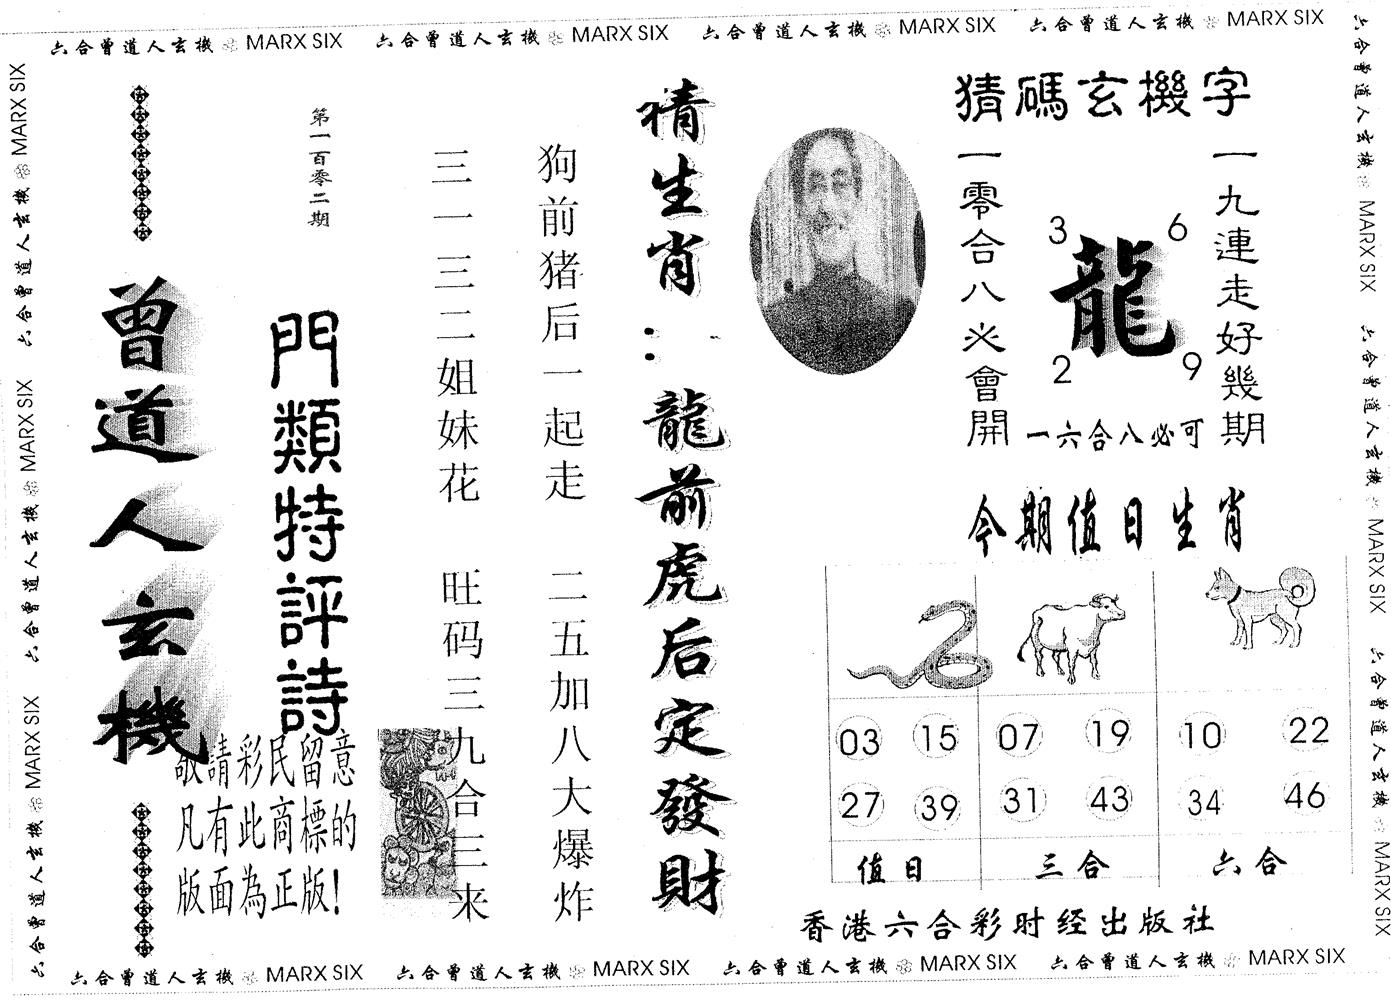 六合曾道人玄機 MARX SIX 六合曾道人玄機 MARX SIX 六合曾道人玄機 MARX SIX 六合曾道人玄機 MARX SIX
六合曾道人玄機 MARX SIX 六合曾道人玄機 MARX SIX 六合曾道人玄機 MARX SIX
六合曾道人玄機 MARX SIX 六合曾道人玄機 MARX SIX 六合曾道人玄機 MARX SIX
猜碼玄機字
一九連走好幾期
3 6
龍
2 9
一零合八必會開
一六合八必可
今期值日生肖
03 15 07 19 10 22
27 39 31 43 34 46
值日 三合 六合
香港六合彩时经出版社
猜生肖：龍前虎后定發財
狗前猪后一起走
二五加八大爆炸
三一三二姐妹花
旺码三九合三来
第一百零二期
門類特評詩
曾道人玄機
敬請彩民留意
凡有此商標的
版面為正版!
六合曾道人玄機 MARX SIX 六合曾道人玄機 MARX SIX 六合曾道人玄機 MARX SIX 六合曾道人玄機 MARX SIX